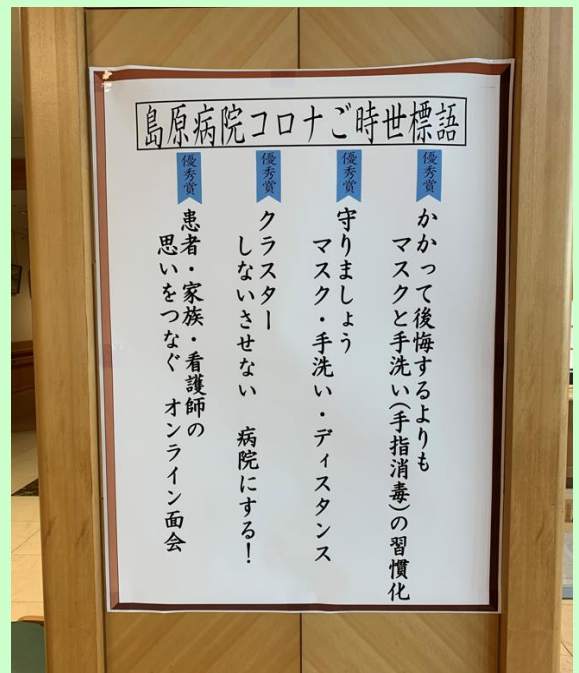 島原病院コロナご時世標語
優秀賞
かかって後悔するよりも
マスクと手洗い(手指消毒)の習慣化
優秀賞
守りましょう
マスク・手洗い・ディスタンス
優秀賞
クラスター
しないさせない　病院にする!
優秀賞
患者・家族・看護師の
思いをつなぐ　オンライン面会